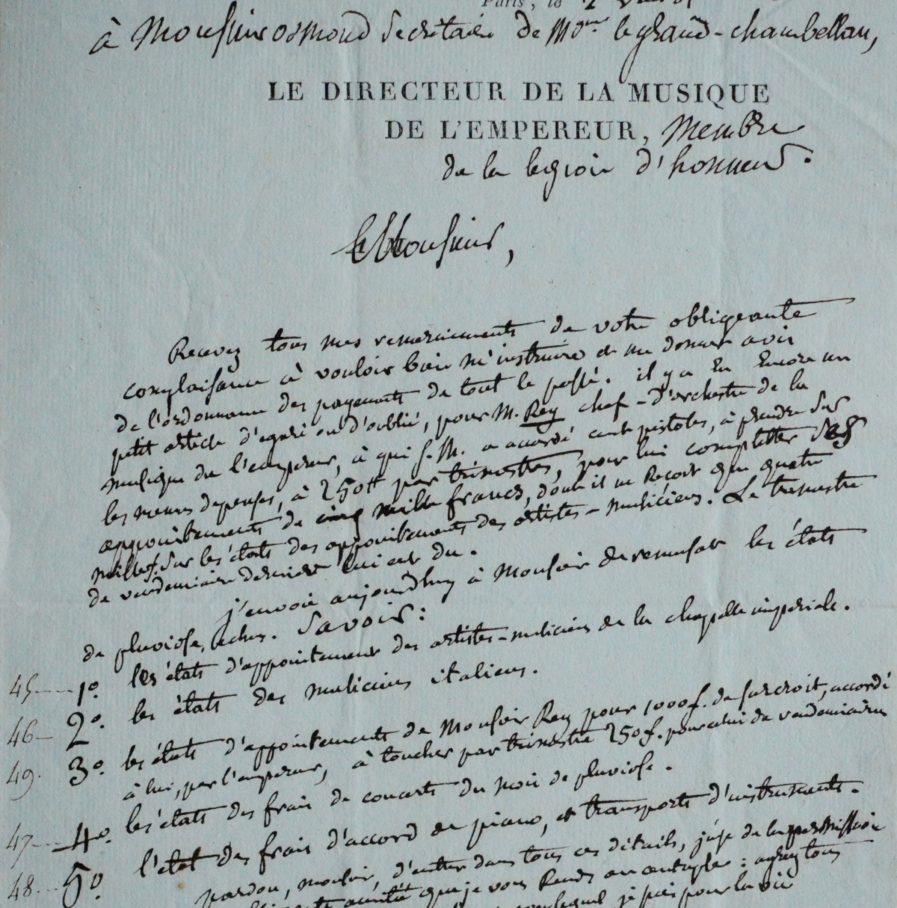 Paris, le 2
à Monsieur osmond Secrétaire de Mgneur le grand-chambellan,
LE DIRECTEUR DE LA MUSIQUE
DE L'EMPEREUR, Membre
de la legion d'honneur.
Monsieur,
Recevez tous mes remerciments de votre obligeante
complaisance à vouloir bien m'instruire et me donner avis
de l'ordonnance des payements de tout le passé. il y a eu Encore un
petit article d'egaré ou d'oublié, pour M. Rey chef-d'orchestre de la
musique de l'empereur, à qui S. M. a accordé cent pistoles, à prendre sur
les menues depenses, à 250 par trimestres, pour lui completter ses
appointements de cinq mille francs, dont il ne Recoit que quatre
mille f. sur les états des appointements des artistes-musiciens. Le trimestre
de vendemiaire dernier lui est du.
j'envoie aujourdhuy à Monsieur de remusat les états
de pluviose, echus. Savoir:
45 1o. les états d'appointement des artistes-musiciens de la chapelle imperiale.
46 2o. les états des musiciens italiens.
49. 3o. les états d'appointements de Monsieur Rey pour 1000 f. de surcroit, accordé
à lui, par l'empereur, à toucher par trimestre 250 f. pour celui de vendemiaire
47 4o. les états des frais de concerts du mois de pluviose.
48 5o l'état des frais d'accord de piano, et transports d'instruments.
pardon, monsieur, d'entrer dans tous ces détails, j'use de la permission
que je vous Rends
je suis pour la vie